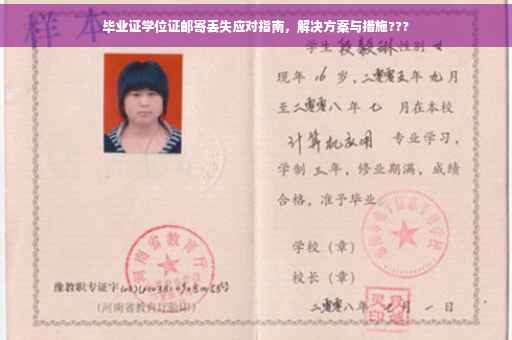 样本
毕业证学位证邮寄丢失应对指南，解决方案与措施???
学生段毅琳性别女
现年16岁，二零零五年九月
至二零零八年七月在本校
计算机应用 专业学习，
学制三年，修业期满，成绩
合格，准予毕业。
学校（章）
校长（章）
豫教职专证字
（河南省教育厅验印）
二零零八年七月一日
河南省教育厅